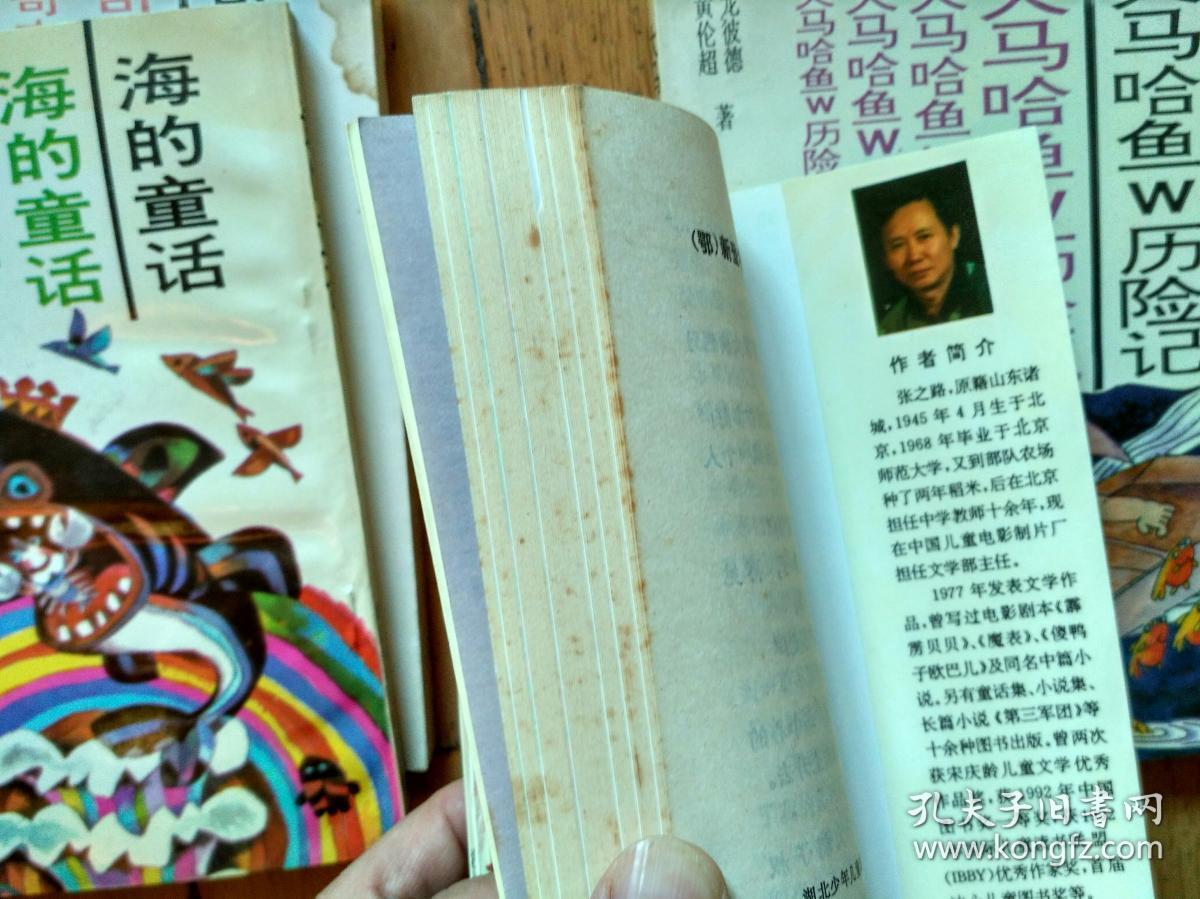 海的童话
海的童话
龙彼德
黄伦超
著
大马哈鱼W历险
大马哈鱼W
大马哈鱼
大马哈鱼
大马哈鱼W历险记
(鄂)新
人
湖北少年儿
作者简介
张之路,原籍山东诸
城,1945年4月生于北
京,1968年毕业于北京
师范大学,又到部队农场
种了两年稻米,后在北京
担任中学教师十余年,现
在中国儿童电影制片厂
担任文学部主任。
1977年发表文学作
品,曾写过电影剧本《霹
雳贝贝》、《魔表》、《傻鸭
子欧巴儿》及同名中篇小
说。另有童话集、小说集、
长篇小说《第三军团》等
十余种图书出版。曾两次
获宋庆龄儿童文学优秀
作品奖,
1992年中国
图书
(IBBY)优秀作家奖,首届
儿童图书奖等。
孔夫子旧书网
www.kongfz.com